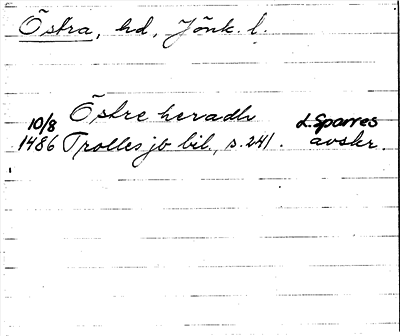 Östra, hd, Jönk. l.
Östre heradh
10/8 1486 Trolles jb bil., s. 241. L. Sparres avskr.